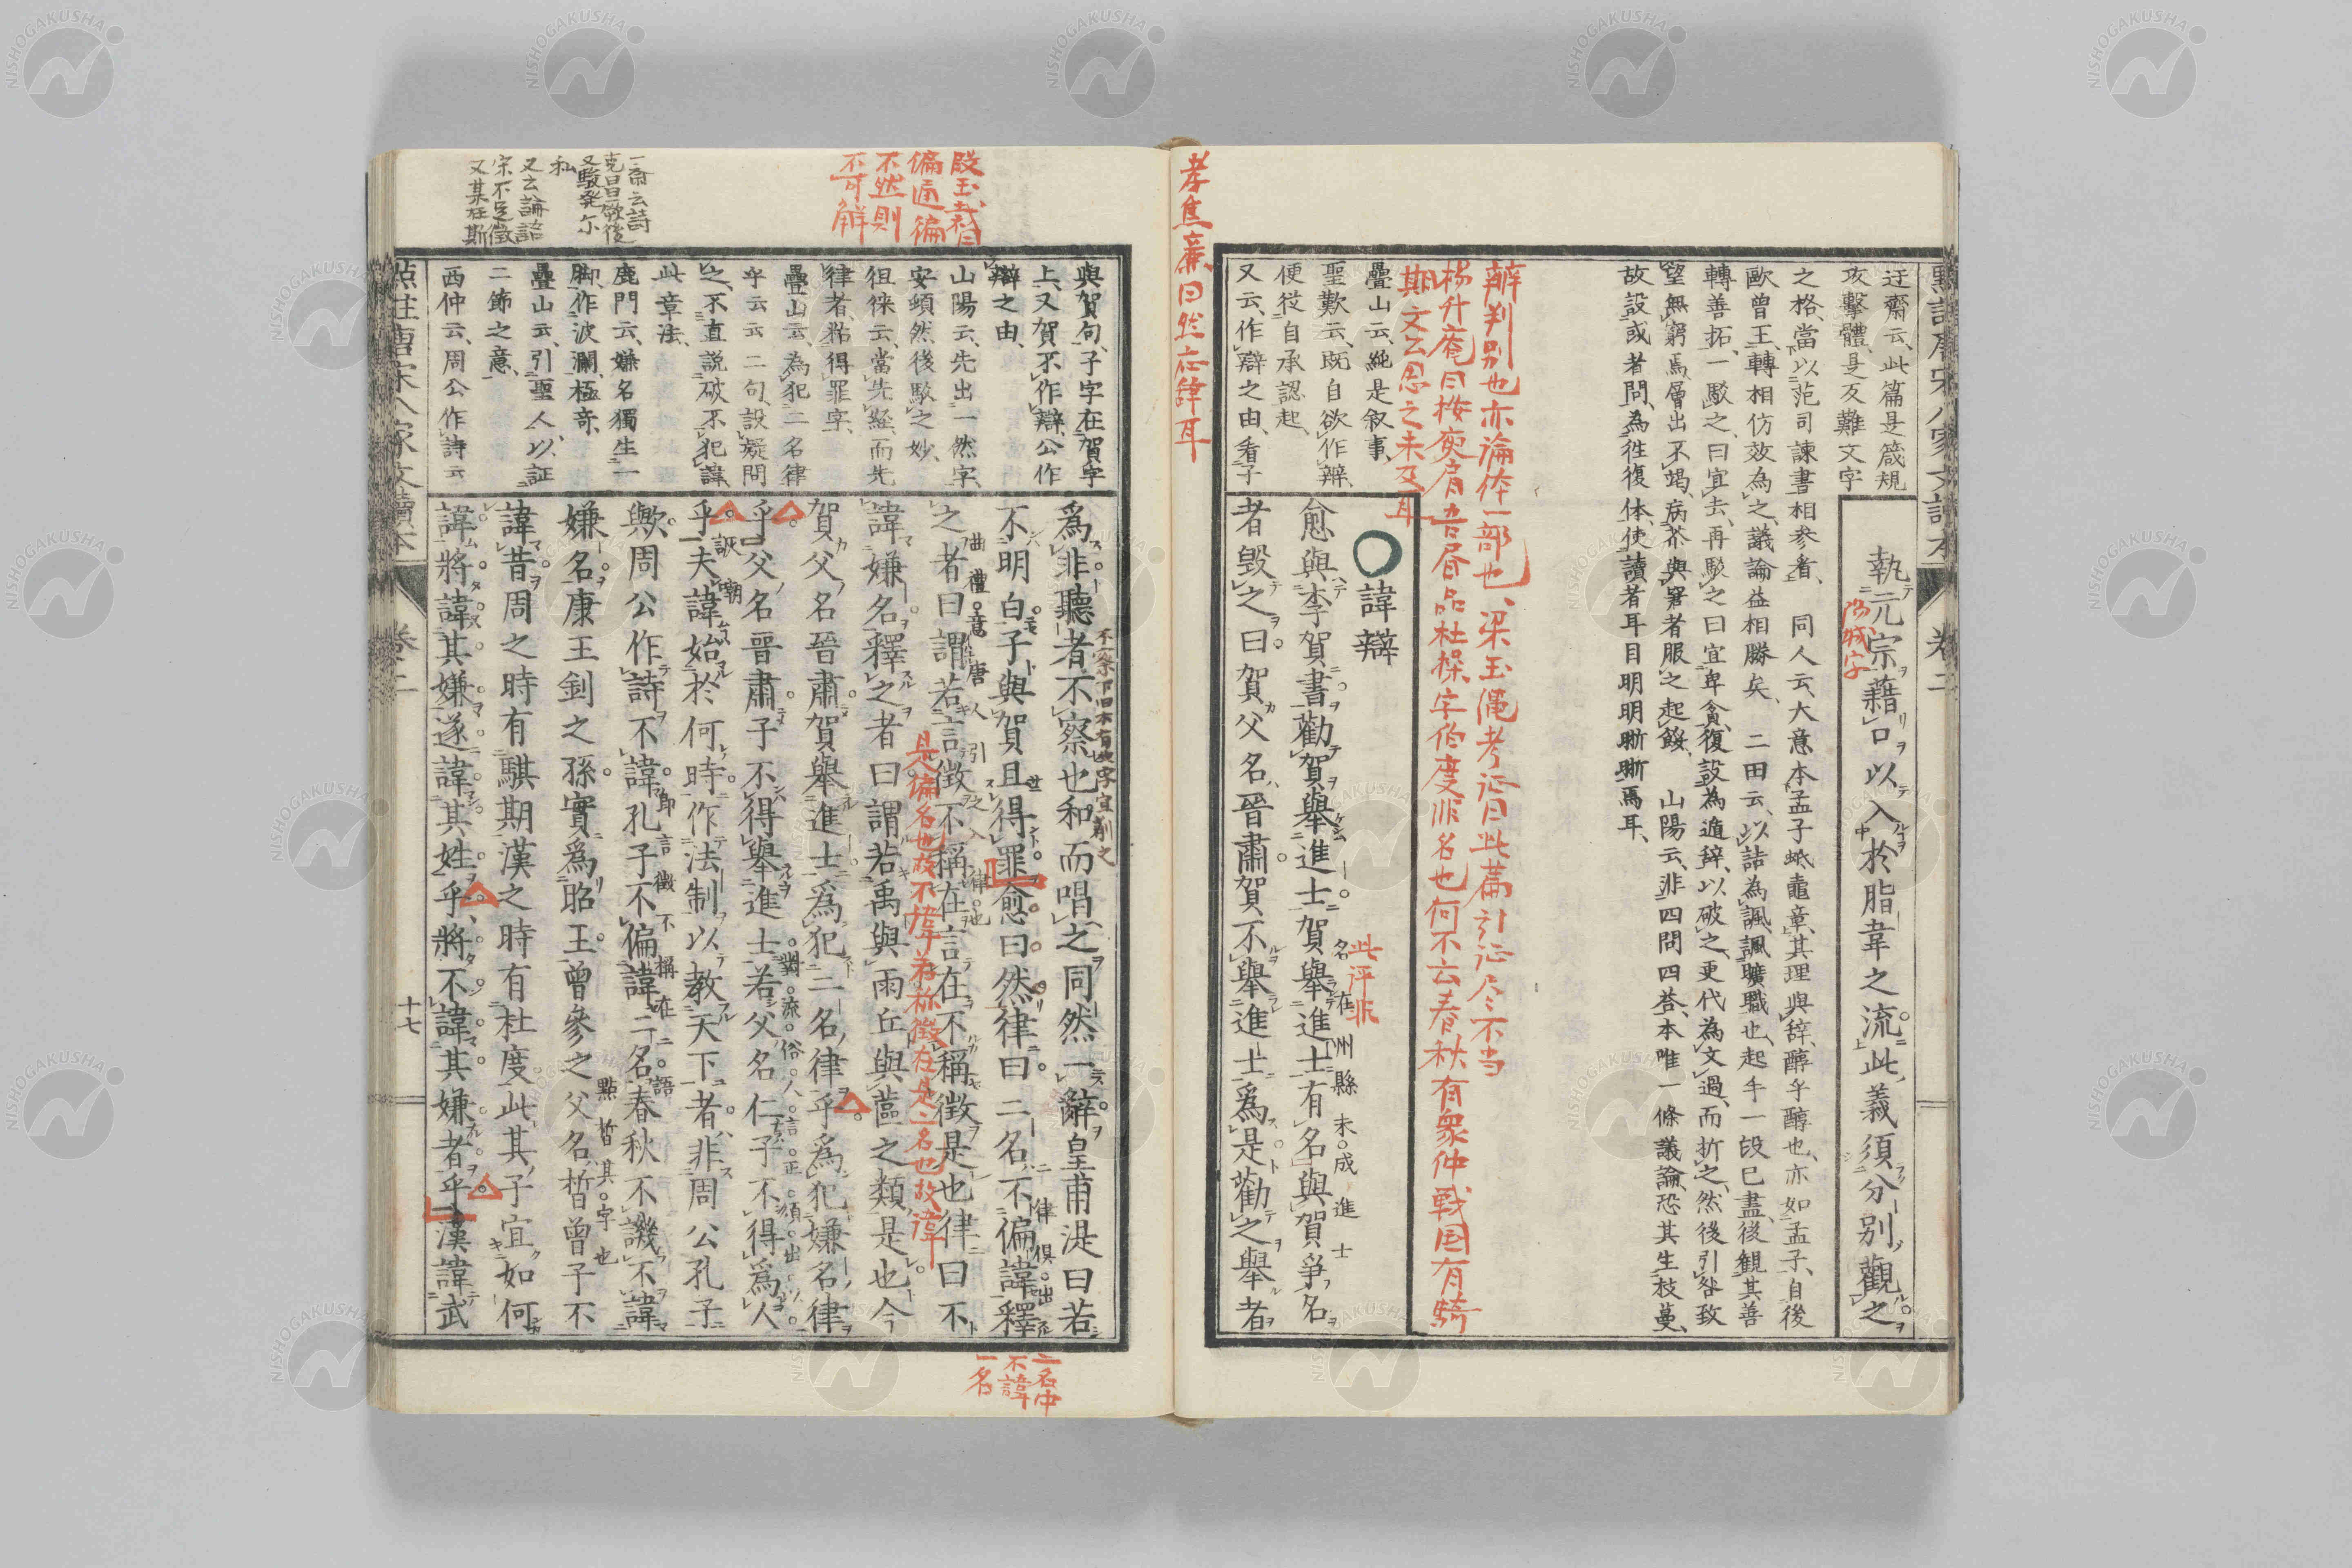 執元宗藉口以入於脂韋之流此義須分別觀之
迂齋云、此篇是箴規
攻擊體、是反難文字
之格、當以范司諫書相參看、 同人云、大意本孟子蚳鼃章、其理與辭、醇乎醇也、亦如孟子、自後
歐曾王、轉相仿效為之、議論益相勝矣、 二田云、以詰為諷、諷曠職也、起手一段已盡、後観其善
轉善拓、一駁之、曰宜去、再駁之曰宜卑貪、復設為遁辭、以破之、更代為文過、而折之、然後引咎致
望、無窮焉、層出不竭、病茶與窘者服之起餒、 山陽云、非四問四荅、本唯一條議論、恐其生枝蔓、
故設或者問、為徃復体、使讀者耳目明明晰晰焉耳、
辨判别也亦論体一部也、梁玉繩考证曰此篇引证尽不当
楊升庵曰按奐肩吾昏品杜操字伯度非名也何不云春秋有衆仲戦国有騎
期文公思之未及耳
孝焦廉曰然应諱耳
疊山云、純是叙事、
聖歎云、既自欲作辯、
便從自承認起、
又云、作辯之由、看子
諱辯
愈與李賀書勸賀舉進士賀舉進士有名與賀爭名
者毀之曰賀父名晉肅賀不舉進士為是勸之舉者
名在州縣未成進士
此评非
與賀句、子字在賀字
上、又賀不作辯、公作
辯之由、
山陽云、先出一然字、
安頓然後駁之妙、
徂徠云、當先経而先
律者、粘得罪字、
疊山云、為犯二名律
乎云云二句、設疑問
之、不直説破不犯諱、
此章法、
鹿門云、嫌名獨生一
脚、作波瀾、極奇、
疊山云、引聖人、以証
二節之意、
西仲云、周公作詩云
殷玉裁曰
偏通徧
不然則
不可解
一斎云詩
克昌厥後
又駿発尓
私
又云論語
宋不足徵
又某在斯
為非聽者不察也和而唱之同然一辭皇甫湜曰若
不明白子與賀且得罪愈曰然律曰二名不偏諱釋
之者曰謂若言徵不稱在言在不稱徵是也律曰不
諱嫌名釋之者曰謂若禹與雨丘與蓲之類是也今
賀父名晉肅賀舉進士為犯二名律乎為犯嫌名律
乎父名晉肅子不得舉進士若父名仁子不得為人
乎夫諱始於何時作法制以教天下者非周公孔子
歟周公作詩不諱孔子不偏諱二名春秋不譏不諱
嫌名康王釗之孫實為昭王曾參之父名皙曾子不
諱昔周之時有騏期漢之時有杜度此其子宜如何
諱將諱其嫌遂諱其姓乎將不諱其嫌者乎漢諱武
是偏名也故不諱若称徵在是二名也故諱
二名中
不諱
一名
十七